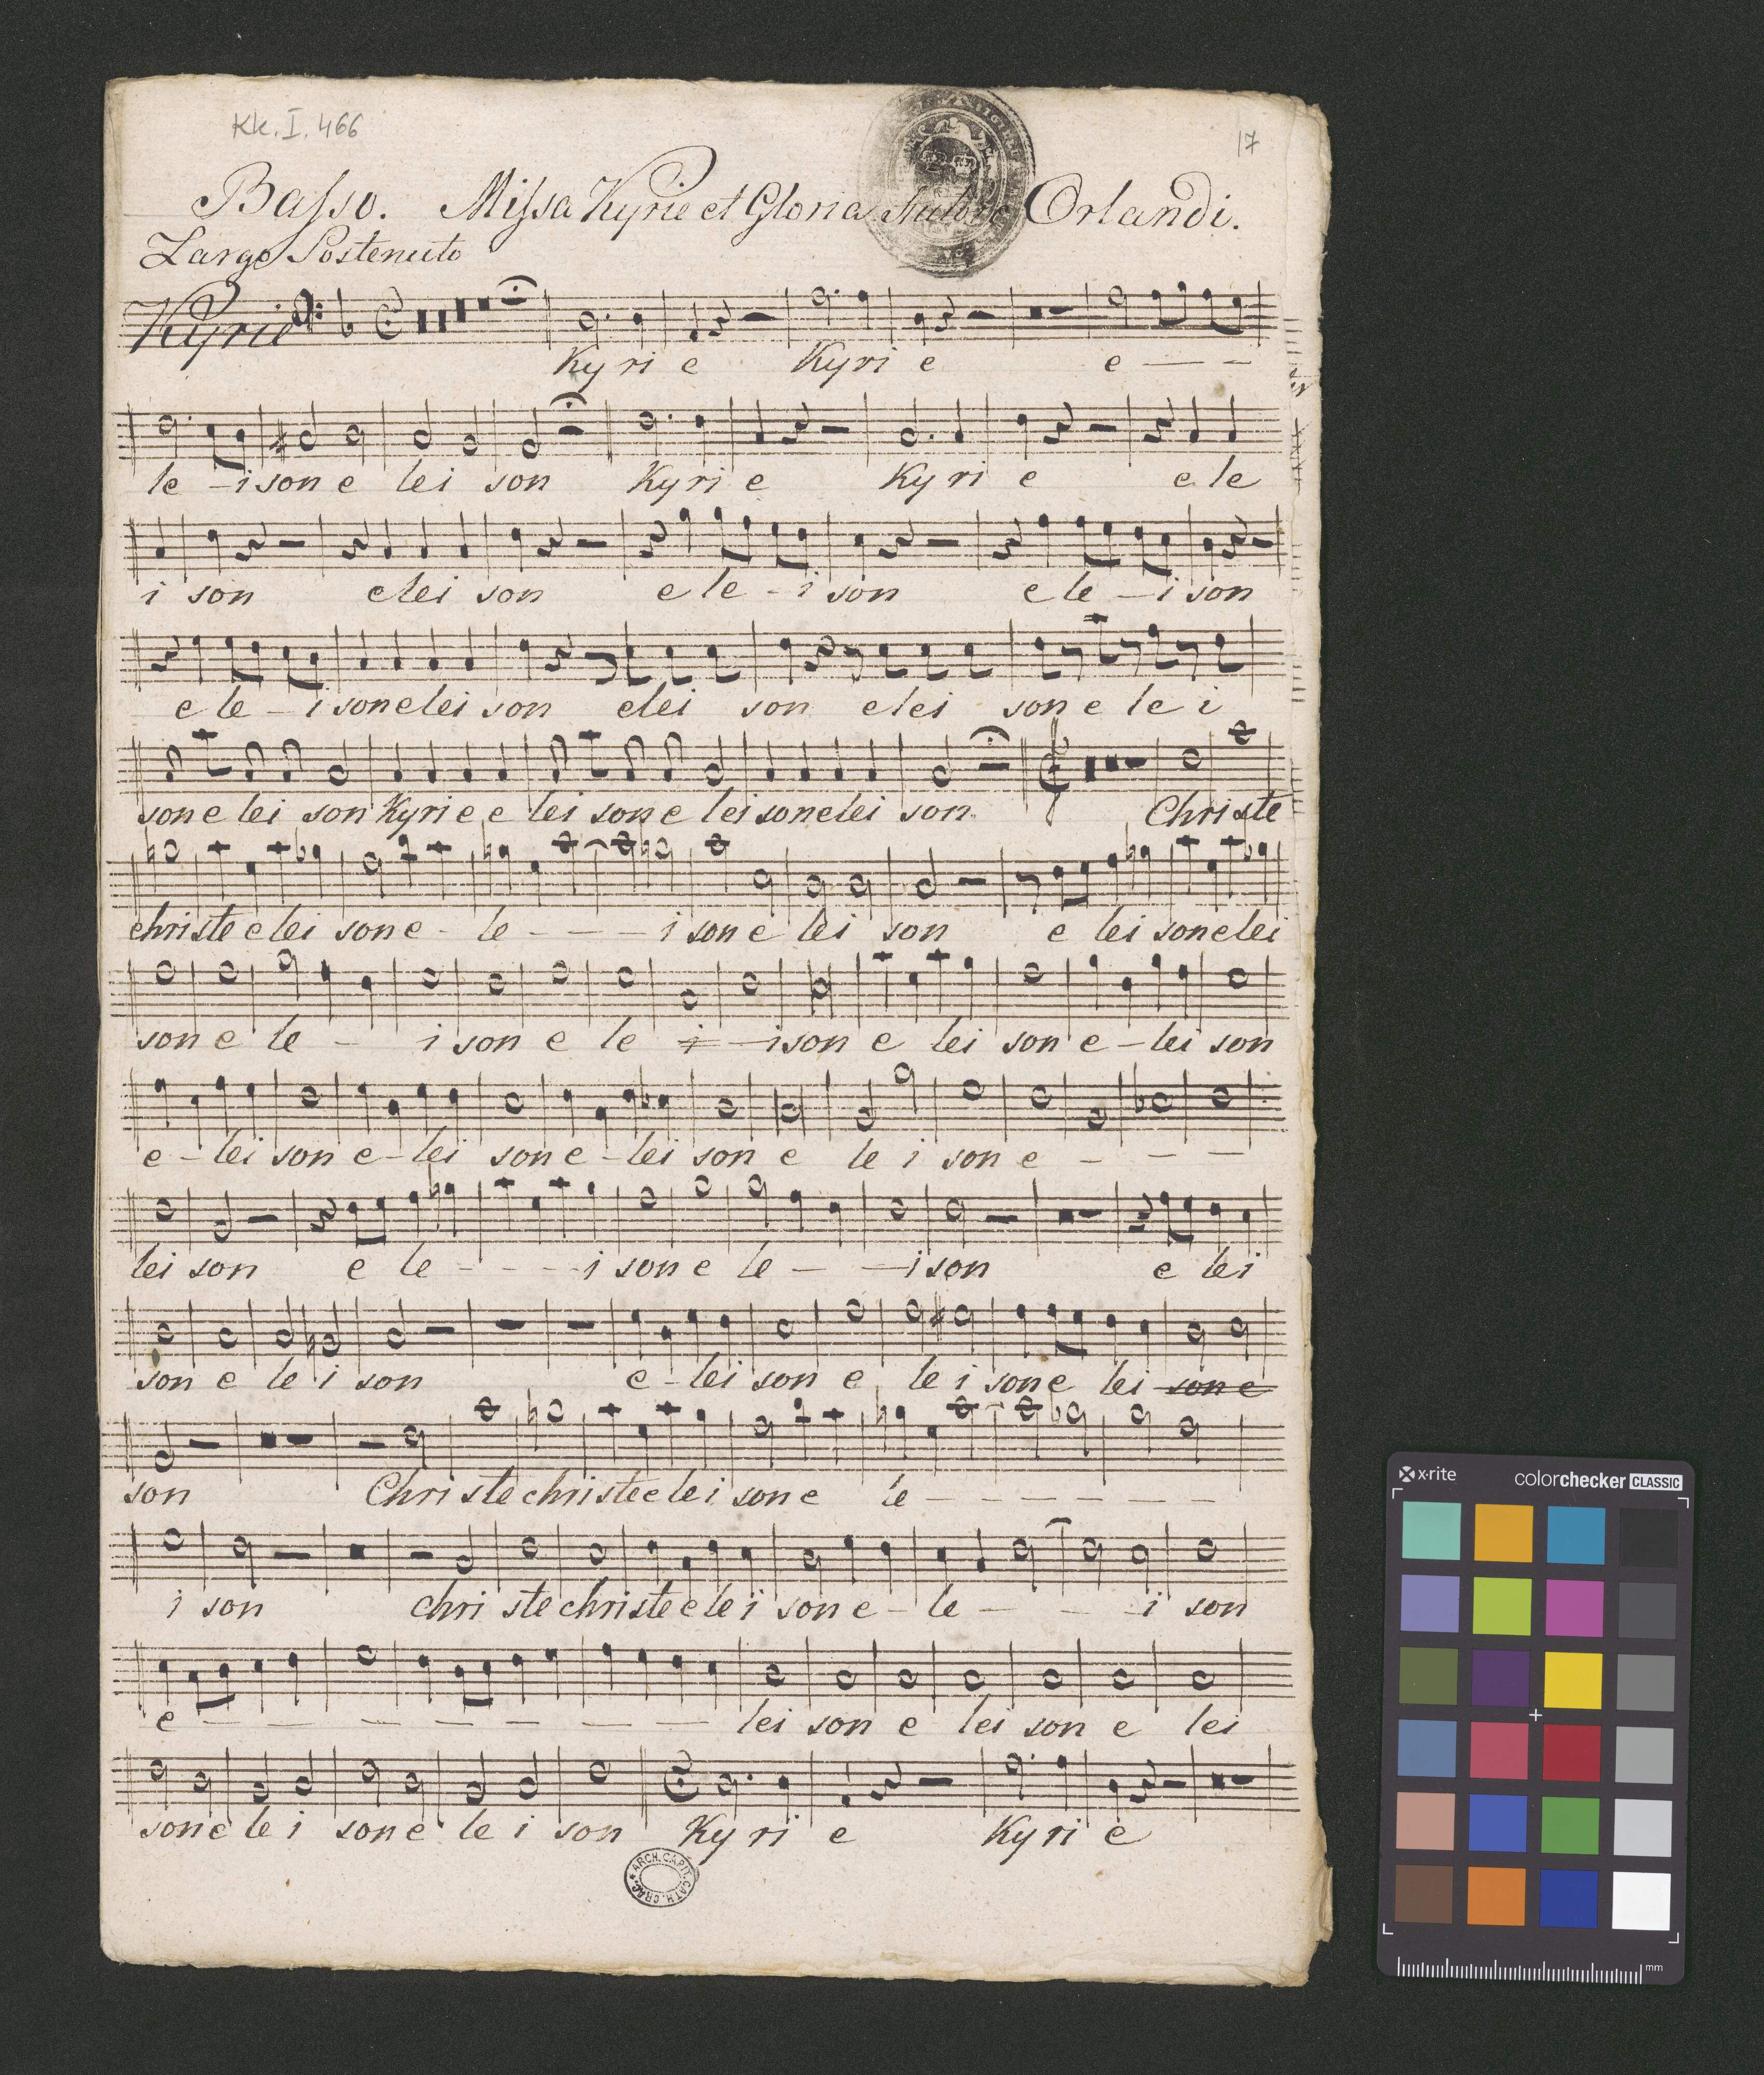 Kk. I. 466
17
Basso. Missa Kyrie et Gloria Autore Orlandi.
Largo Sostenuto
Kyrie
Ky ri e Ky ri e e — — —
le - i son e lei son Ky ri e Ky ri e e le
i son e lei son e le - i son e le - i son
e le - i son e lei son e lei son e lei son e le i
son e lei son Kyri e e lei son e lei son e lei son Chri ste
christe e lei son e - le - — — i son e lei son e lei son e lei
son e le - i son e le i — i son e lei son e - lei son
e - lei son e - lei son e - lei son e le i son e - — — —
lei son e le - - - - i son e le — — i son e lei
son e le i son e - lei son e le i son e lei son e
son Chri ste christe e le i son e le — — — — — — —
i son chri ste christe e le i son e - le — — — i son
e — — — — — — — — lei son e lei son e lei
son e le i son e le i son Ky ri e Ky ri e
ARCH. CAPIT. CATH. CRAC.
x·rite colorchecker CLASSIC
mm